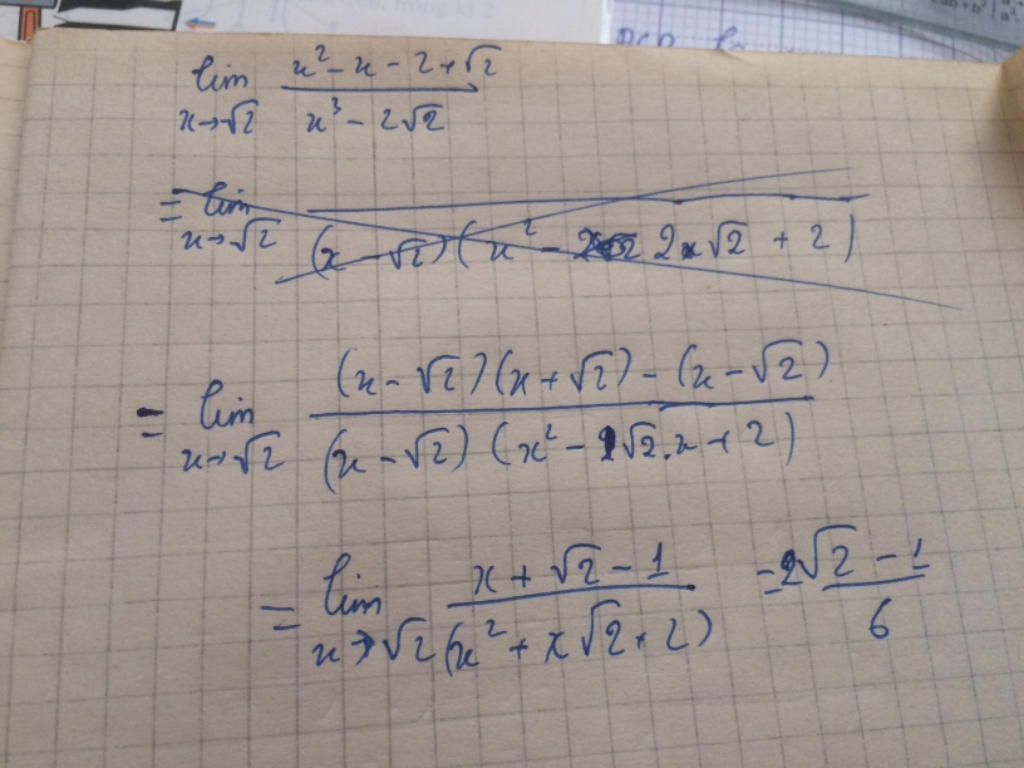 lim x→√2 (x² - x - 2 + √2)/(x³ - 2√2)
= lim x→√2 /((x - √2)(x² - 2x√2 + 2))
= lim x→√2 ((x - √2)(x + √2) - (x - √2))/((x - √2)(x² - √2.x + 2))
= lim x→√2 (x + √2 - 1)/(x² + x√2 + 2) = (2√2 - 1)/6